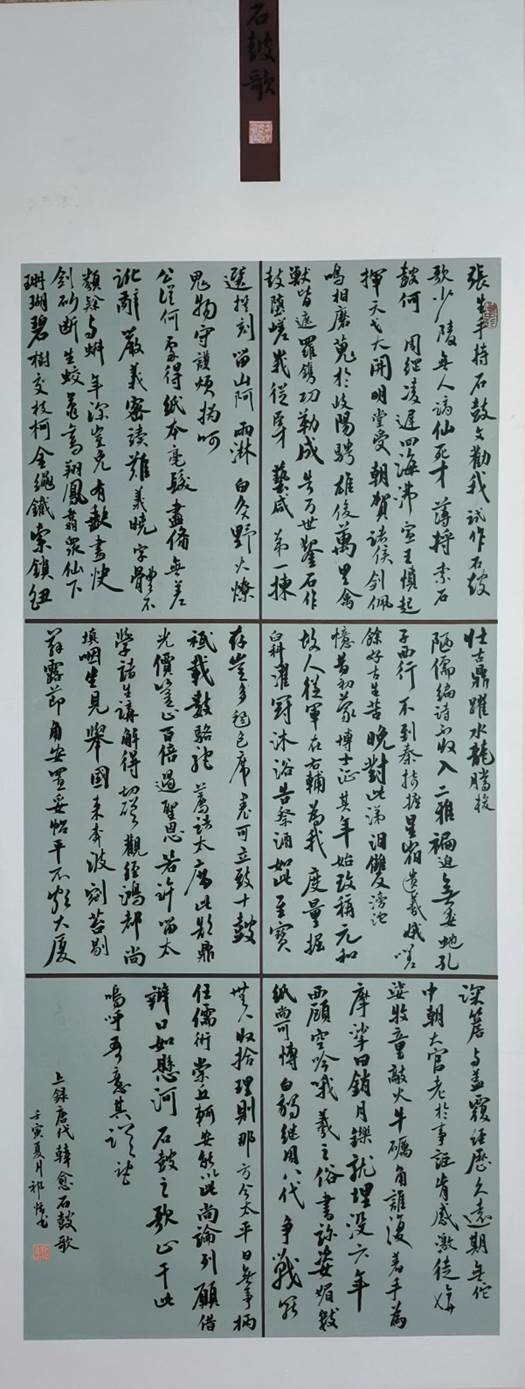 石鼓歌
張生手持石鼓文勸我試作石鼓
歌少陵無人謫仙死才薄將奈石
鼓何周綱凌遲四海沸宣王憤起
揮天戈大開明堂受朝賀諸侯劍佩
鳴相磨蒐於岐陽騁雄俊萬里禽
獸皆遮羅鐫功勒成告万世鑿石作
鼓隳嵯峨從臣才藝咸第一揀
選撰刻留山阿雨淋日炙野火燎
鬼物守護煩撝呵
公從何處得紙本毫髮盡備無差
訛辭嚴義密讀難曉字體不
類隸與蝌年深豈免有缺畫快
劍斫斷生蛟鼉鸞翔鳳翥眾仙下
珊瑚碧樹交枝柯金繩鐵索鎖鈕
壯古鼎躍水龍騰梭
陋儒編詩不收入二雅褊迫無委蛇孔
子西行不到秦掎摭星宿遺羲娥嗟
餘好古生苦晚對此涕泪雙滂沱
憶昔初蒙博士征其年始改稱元和
故人從軍在右輔為我度量掘
臼科濯冠沐浴告祭酒如此至寶
存豈多氈包席裹可立致十鼓
祗載數駱駝薦諸太廟比郜鼎
光價豈止百倍過聖恩若許留太
學諸生講解得切磋觀經鴻都尚
填咽坐見舉國來奔波剜苔剔
蘚露節角安置妥帖平不頗大厦
深簷與蓋覆經歷久遠期無佗
中朝大官老於事詎肯感激徒媕
娿牧童敲火牛礪角誰復著手為
摩挲日銷月鑠就埋没六年
西顧空吟哦羲之俗書趁姿媚數
紙尚可博白鵝繼周八代爭戰罷
無人收拾理則那方今太平日無事柄
任儒術崇丘軻安能以此尚論列願借
辯口如懸河石鼓之歌止于此
嗚呼吾意其蹉跎
上錄唐代韓愈石鼓歌
壬寅夏月祁